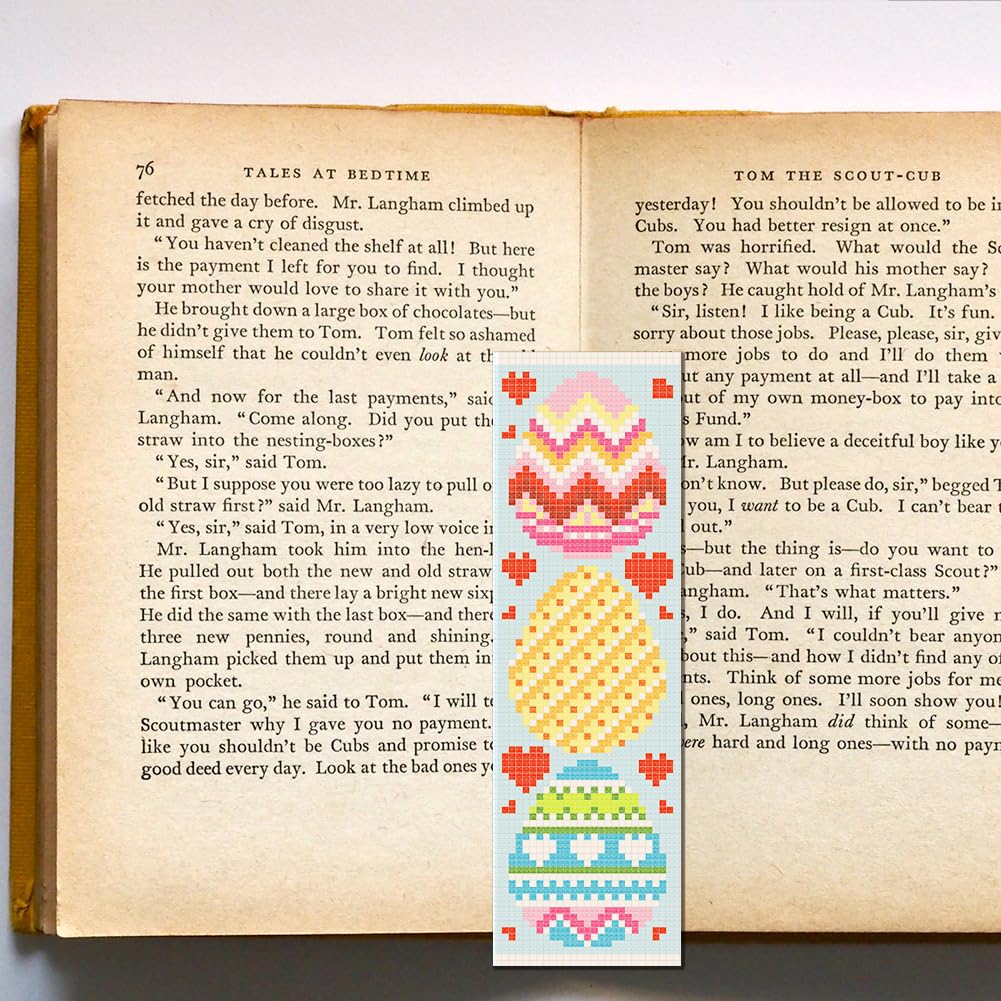 76 TALES AT BEDTIME
fetched the day before. Mr. Langham climbed up
it and gave a cry of disgust.
“You haven’t cleaned the shelf at all! But here
is the payment I left for you to find. I thought
your mother would love to share it with you.”
He brought down a large box of chocolates—but
he didn’t give them to Tom. Tom felt so ashamed
of himself that he couldn’t even look at
man.
“And now for the last payments,” said
Langham. “Come along. Did you put the
straw into the nesting-boxes?”
“Yes, sir,” said Tom.
“But I suppose you were too lazy to pull
old straw first?” said Mr. Langham.
“Yes, sir,” said Tom, in a very low voice
Mr. Langham took him into the
He pulled out both the new and old straw
the first box—and there lay a bright new
He did the same with the last box—and there
three new pennies, round and shining.
Langham picked them up and put them
own pocket.
“You can go,” he said to Tom. “I will
Scoutmaster why I gave you no payment.
like you shouldn’t be Cubs and promise
good deed every day. Look at the bad ones
TOM THE SCOUT-CUB
yesterday! You shouldn’t be allowed to be
Cubs. You had better resign at once.”
Tom was horrified. What would the
master say? What would his mother say?
the boys? He caught hold of Mr. Langham’s
“Sir, listen! I like being a Cub. It’s fun.
sorry about those jobs. Please, please, sir,
more jobs to do and I’ll do them
any payment at all—and I’ll take a
out of my own money-box to pay into
Fund.”
am I to believe a deceitful boy like
Langham.
know. But please do, sir,” begged
you, I want to be a Cub. I can’t bear
out.”
—but the thing is—do you want to
—and later on a first-class Scout?”
“That’s what matters.”
I do. And I will, if you’ll give
said Tom. “I couldn’t bear
this—and how I didn’t find any
Think of some more jobs for me
ones, long ones. I’ll soon show you!
Mr. Langham did think of some—
hard and long ones—with no